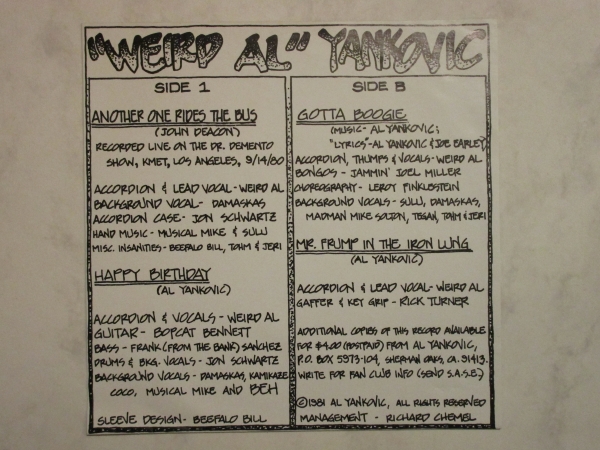 "WEIRD AL" YANKOVIC
SIDE 1
ANOTHER ONE RIDES THE BUS
(JOHN DEACON)
RECORDED LIVE ON THE DR. DEMENTO
SHOW, KMET, LOS ANGELES, 9/14/80
ACCORDION & LEAD VOCAL - WEIRD AL
BACKGROUND VOCAL - DAMASKAS
ACCORDION CASE - JON SCHWARTZ
HAND MUSIC - MUSICAL MIKE & SULU
MISC. INSANITIES - BEEFALO BILL, TOHM & JERI
HAPPY BIRTHDAY
(AL YANKOVIC)
ACCORDION & VOCALS - WEIRD AL
GUITAR - BOPCAT BENNETT
BASS - FRANK (FROM THE BANK) SANCHEZ
DRUMS & BKG. VOCALS - JON SCHWARTZ
BACKGROUND VOCALS - DAMASKAS, KAMIKAZE
COCO, MUSICAL MIKE AND BEH
SLEEVE DESIGN - BEEFALO BILL
SIDE B
GOTTA BOOGIE
(MUSIC - AL YANKOVIC;
"LYRICS" - AL YANKOVIC & JOE EARLEY)
ACCORDION, THUMPS & VOCALS - WEIRD AL
BONGOS - JAMMIN' JOEL MILLER
CHOREOGRAPHY - LEROY FINKLESTEIN
BACKGROUND VOCALS - SULU, DAMASKAS,
MADMAN MIKE SOLTON, TEGAN, TOHM & JERI
MR. FRUMP IN THE IRON LUNG
(AL YANKOVIC)
ACCORDION & LEAD VOCAL - WEIRD AL
GAFFER & KEY GRIP - RICK TURNER
ADDITIONAL COPIES OF THIS RECORD AVAILABLE
FOR $4.00 (POSTPAID) FROM AL YANKOVIC,
P.O. BOX 5973-104, SHERMAN OAKS, CA. 91413.
WRITE FOR FAN CLUB INFO (SEND S.A.S.E.)
©1981 AL YANKOVIC, ALL RIGHTS RESERVED
MANAGEMENT - RICHARD CHEMEL